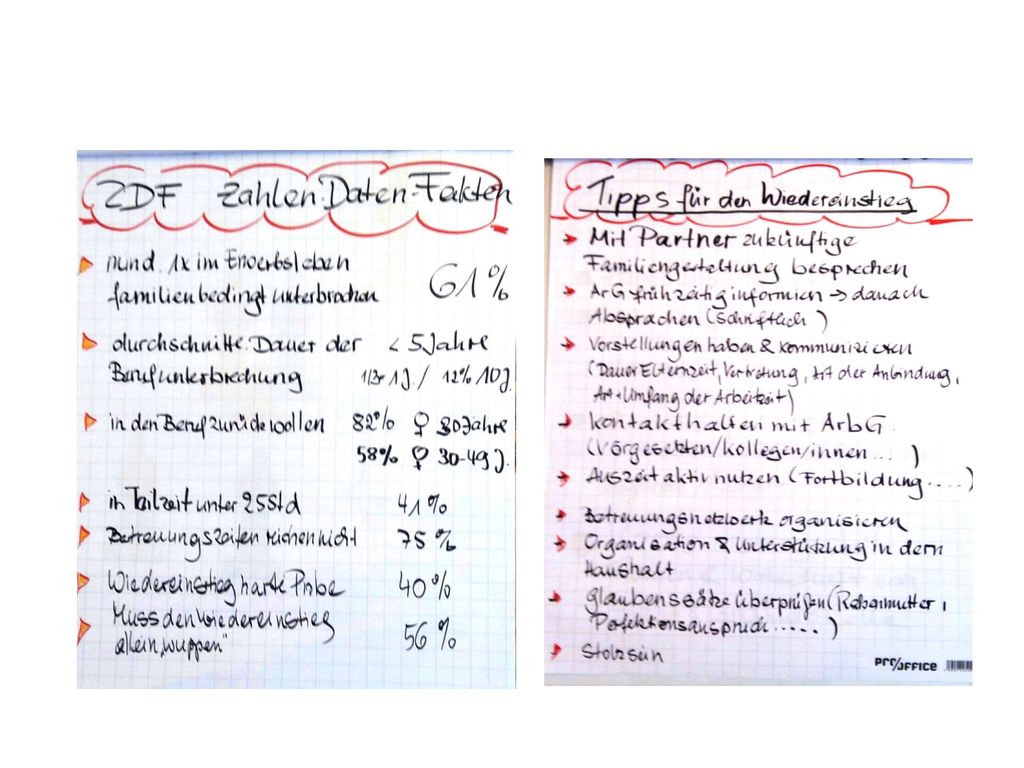 ZDF Zahlen Daten Fakten
mind. 1x im Erwerbsleben
familienbedingt unterbrochen 61%
durchschnittl. Dauer der < 5 Jahre
Berufunterbrechung 1/3 1 J. / 12% 10 J.
in den Beruf zurück wollen 82% ♀ 30 Jahre
58% ♀ 30-49 J.
in Teilzeit unter 25 Std 41%
Betreuungszeiten reichen nicht 75%
Wiedereinstieg harte Probe 40%
Muss den Wiedereinstieg
allein „wuppen" 56%
Tipps für den Wiedereinstieg
Mit Partner zukünftige
Familiengestaltung besprechen
ArG frühzeitig informien → danach
Absprachen (schriftlich )
Vorstellungen haben & kommunizieren
(Dauer Elternzeit, Vertretung, Art der Anbindung,
Art + Umfang der Arbeitzeit)
Kontakt halten mit ArbG
(Vorgesetzten/kollegen/innen ... )
Auszeit aktiv nutzen (Fortbildung .....)
Betreuungsnetzwerk organisieren
Organisation & Unterstützung in dem
Haushalt
Glaubenssätze überprüfen (Rabenmutter,
Pefektionsanspruch ..... )
Stolz sein
pro/office